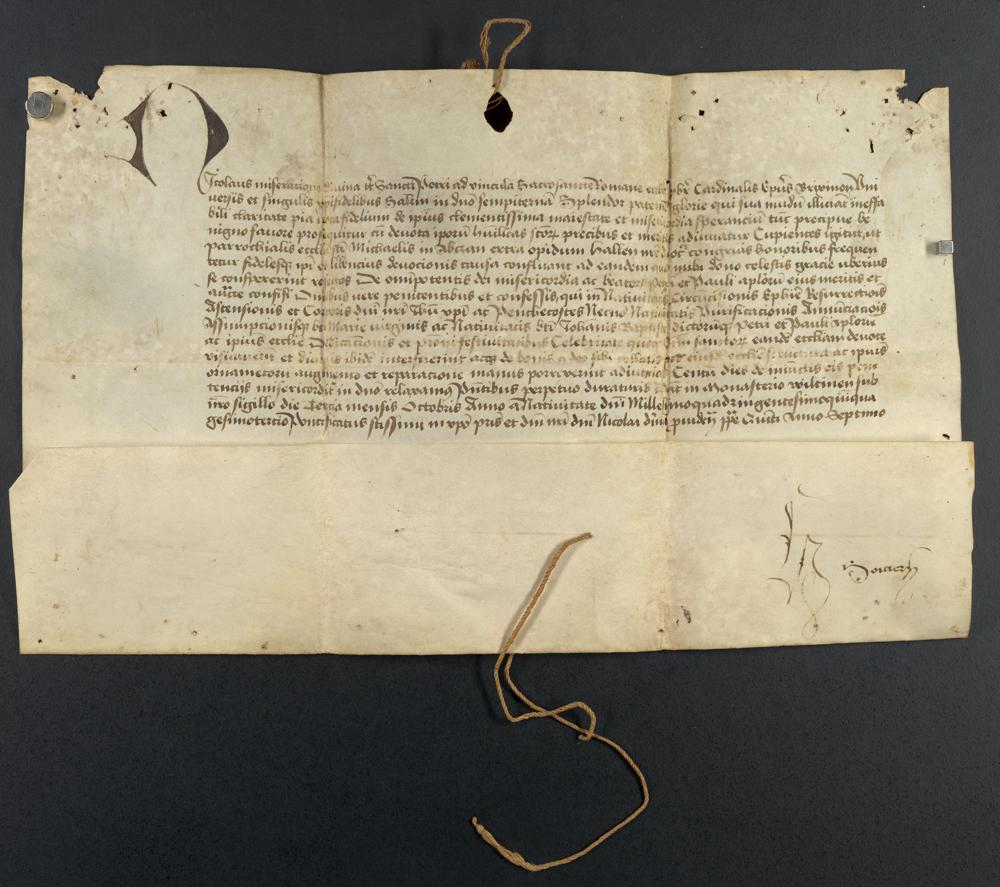 Nicolaus miseracione divina tt Sancti Petri ad vincula Sacrosancte Romane eccle pbr Cardinalis Eps Brixinen Uni
versis et singulis xpifidelibus Saltm in dno sempiternam Splendor paterne glorie qui sua mundum illuminat ineffa
bili claritate pia vota fidelium de ipius clementissima maiestate et misericordia sperancium tuc precipue be
nigno favore prosequitur cu devota iporum humilitas sctor precibus et meritis adiuvatur Cupientes igitur ut
parrochialis ecclesia sti Michaelis in Abczan extra opidum Hallen congruis honoribus frequen
tetur fidelesq ipi eo libencius devocionis causa confluant ad eandem quo inibi dono celestis gracie uberius
se conspexerint refectos De omipotentis dei misericordia ac beator Petri et Pauli aplorum eius meritis et
aucte confisi Omnibus vere penitentibus et confessis, qui in Nativitatis Circucisionis Ephie Resurrectionis
Ascensionis et Corporis dni nri Ihu xpi ac Penthecostes Necno Nativitatis Purificacionis Annunciacois
Assumpcionisq bte Marie virginis ac Nativitatis bti Johanis Baptiste dictorumq Petri et Pauli aplorum
ac ipius ecclie Dedicacionis et proni festivitatibus Celebritate quoq Omnium sanctorum eande eccliam devote
visitaverit et divinis ibide interfuerint acq de bonis a deo sibi collatis pro eiusde ecclie structura ac ipius
ornametoru augmento et reparatione manus porrexerint adiutrices Centu dies de iniunctis eis peni
tenciis misericordit in dno relaxamus Pntibus perpetuo duraturis Dat in Monasterio wiltinen sub
nro sigillo die Tercia mensis Octobris Anno a Nativitate dni Millesimoquadringentesimoquinqua
gesimotercio Pontificatus sctissimi in xpo pris et dni nri dni Nicolai divina providen ppe Quinti Anno Septimo